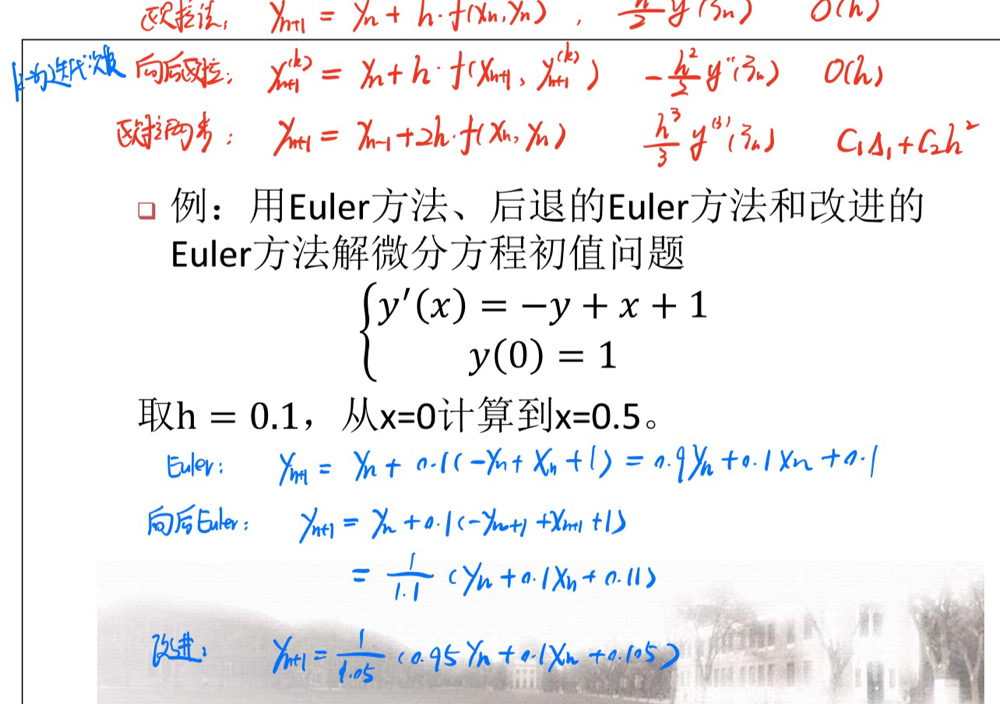 欧拉法: yn+1 = yn + h·f(xn, yn), h²/2 y''(ξn) O(h)
k为迭代次数 向后欧拉: yn+1^(k) = yn + h·f(xn+1, yn+1^(k)) -h²/2 y''(ξn) O(h)
欧拉两步: yn+1 = yn-1 + 2h·f(xn, yn) h³/3 y^(3)(ξn) C1Δ1 + C2h²
例：用Euler方法、后退的Euler方法和改进的
Euler方法解微分方程初值问题
y′(x) = −y + x + 1
y(0) = 1
取h = 0.1，从x=0计算到x=0.5。
Euler: yn+1 = yn + 0.1(-yn + xn + 1) = 0.9yn + 0.1xn + 0.1
向后Euler: yn+1 = yn + 0.1(-yn+1 + xn+1 + 1)
= 1/1.1 (yn + 0.1xn + 0.11)
改进: yn+1 = 1/1.05 (0.95yn + 0.1xn + 0.105)